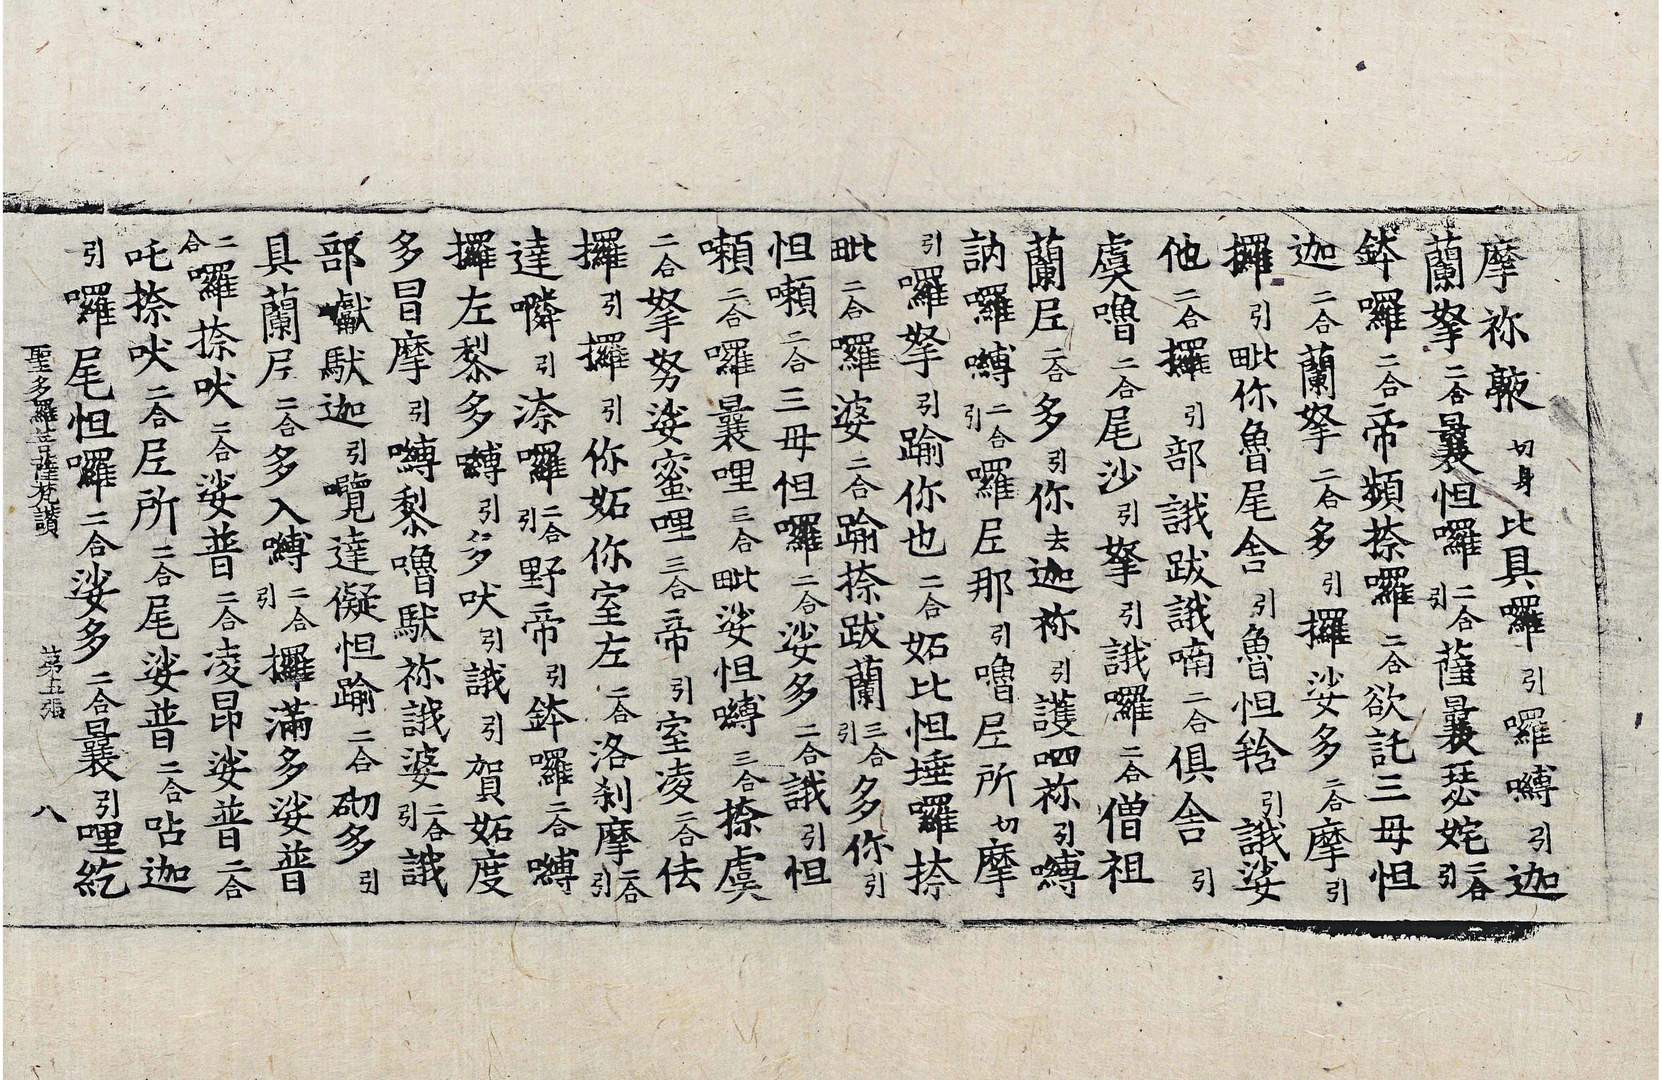 摩祢蔽切身比具囉引囉嚩引迦
蘭拏二合曩怛囉二合引薩曩瑟姹二合引
鉢囉二合帝頻捺囉二合欲託三毋怛
迦二合蘭拏二合多引攞娑多二合摩引
攞引毗你魯尾舍引魯怛鞈引誐娑
他二合攞引部誐跋誐喃二合俱舍引
虞嚕二合尾沙引拏引誐囉二合僧祖
蘭𡰱二合多引你去迦祢引護呬祢引嚩
訥囉嚩二合引囉𡰱那引嚕𡰱所切摩
引囉拏引踰你也二合妬比怛埵囉捺
毗二合囉婆二合踰捺跋蘭三合引多你引
怛嚬二合三毋怛囉二合娑多二合誐引怛
嚬二合囉曩哩三合毗娑怛嚩三合捺虞
二合拏努娑蜜哩三合帝引室凌二合佉
攞引攞引你妬你室左二合洛剎摩二合引
達嶙引渿囉二合引野帝引鉢囉二合嚩
攞左黎多嚩引多吠引誐引賀妬度
多曰摩引嚩黎嚕馱祢誐婆二合引誐
部巘馱迦引覽達儗怛踰二合砌多引
具蘭𡰱二合多入嚩二合引攞滿多娑普
二合囉捺吠二合娑普二合凌昂娑普二合
吒捺吠二合𡰱所二合尾娑普二合呫迦
引囉尾怛囉二合娑多二合曩引哩紇
聖多羅菩薩梵讚 第五張 八